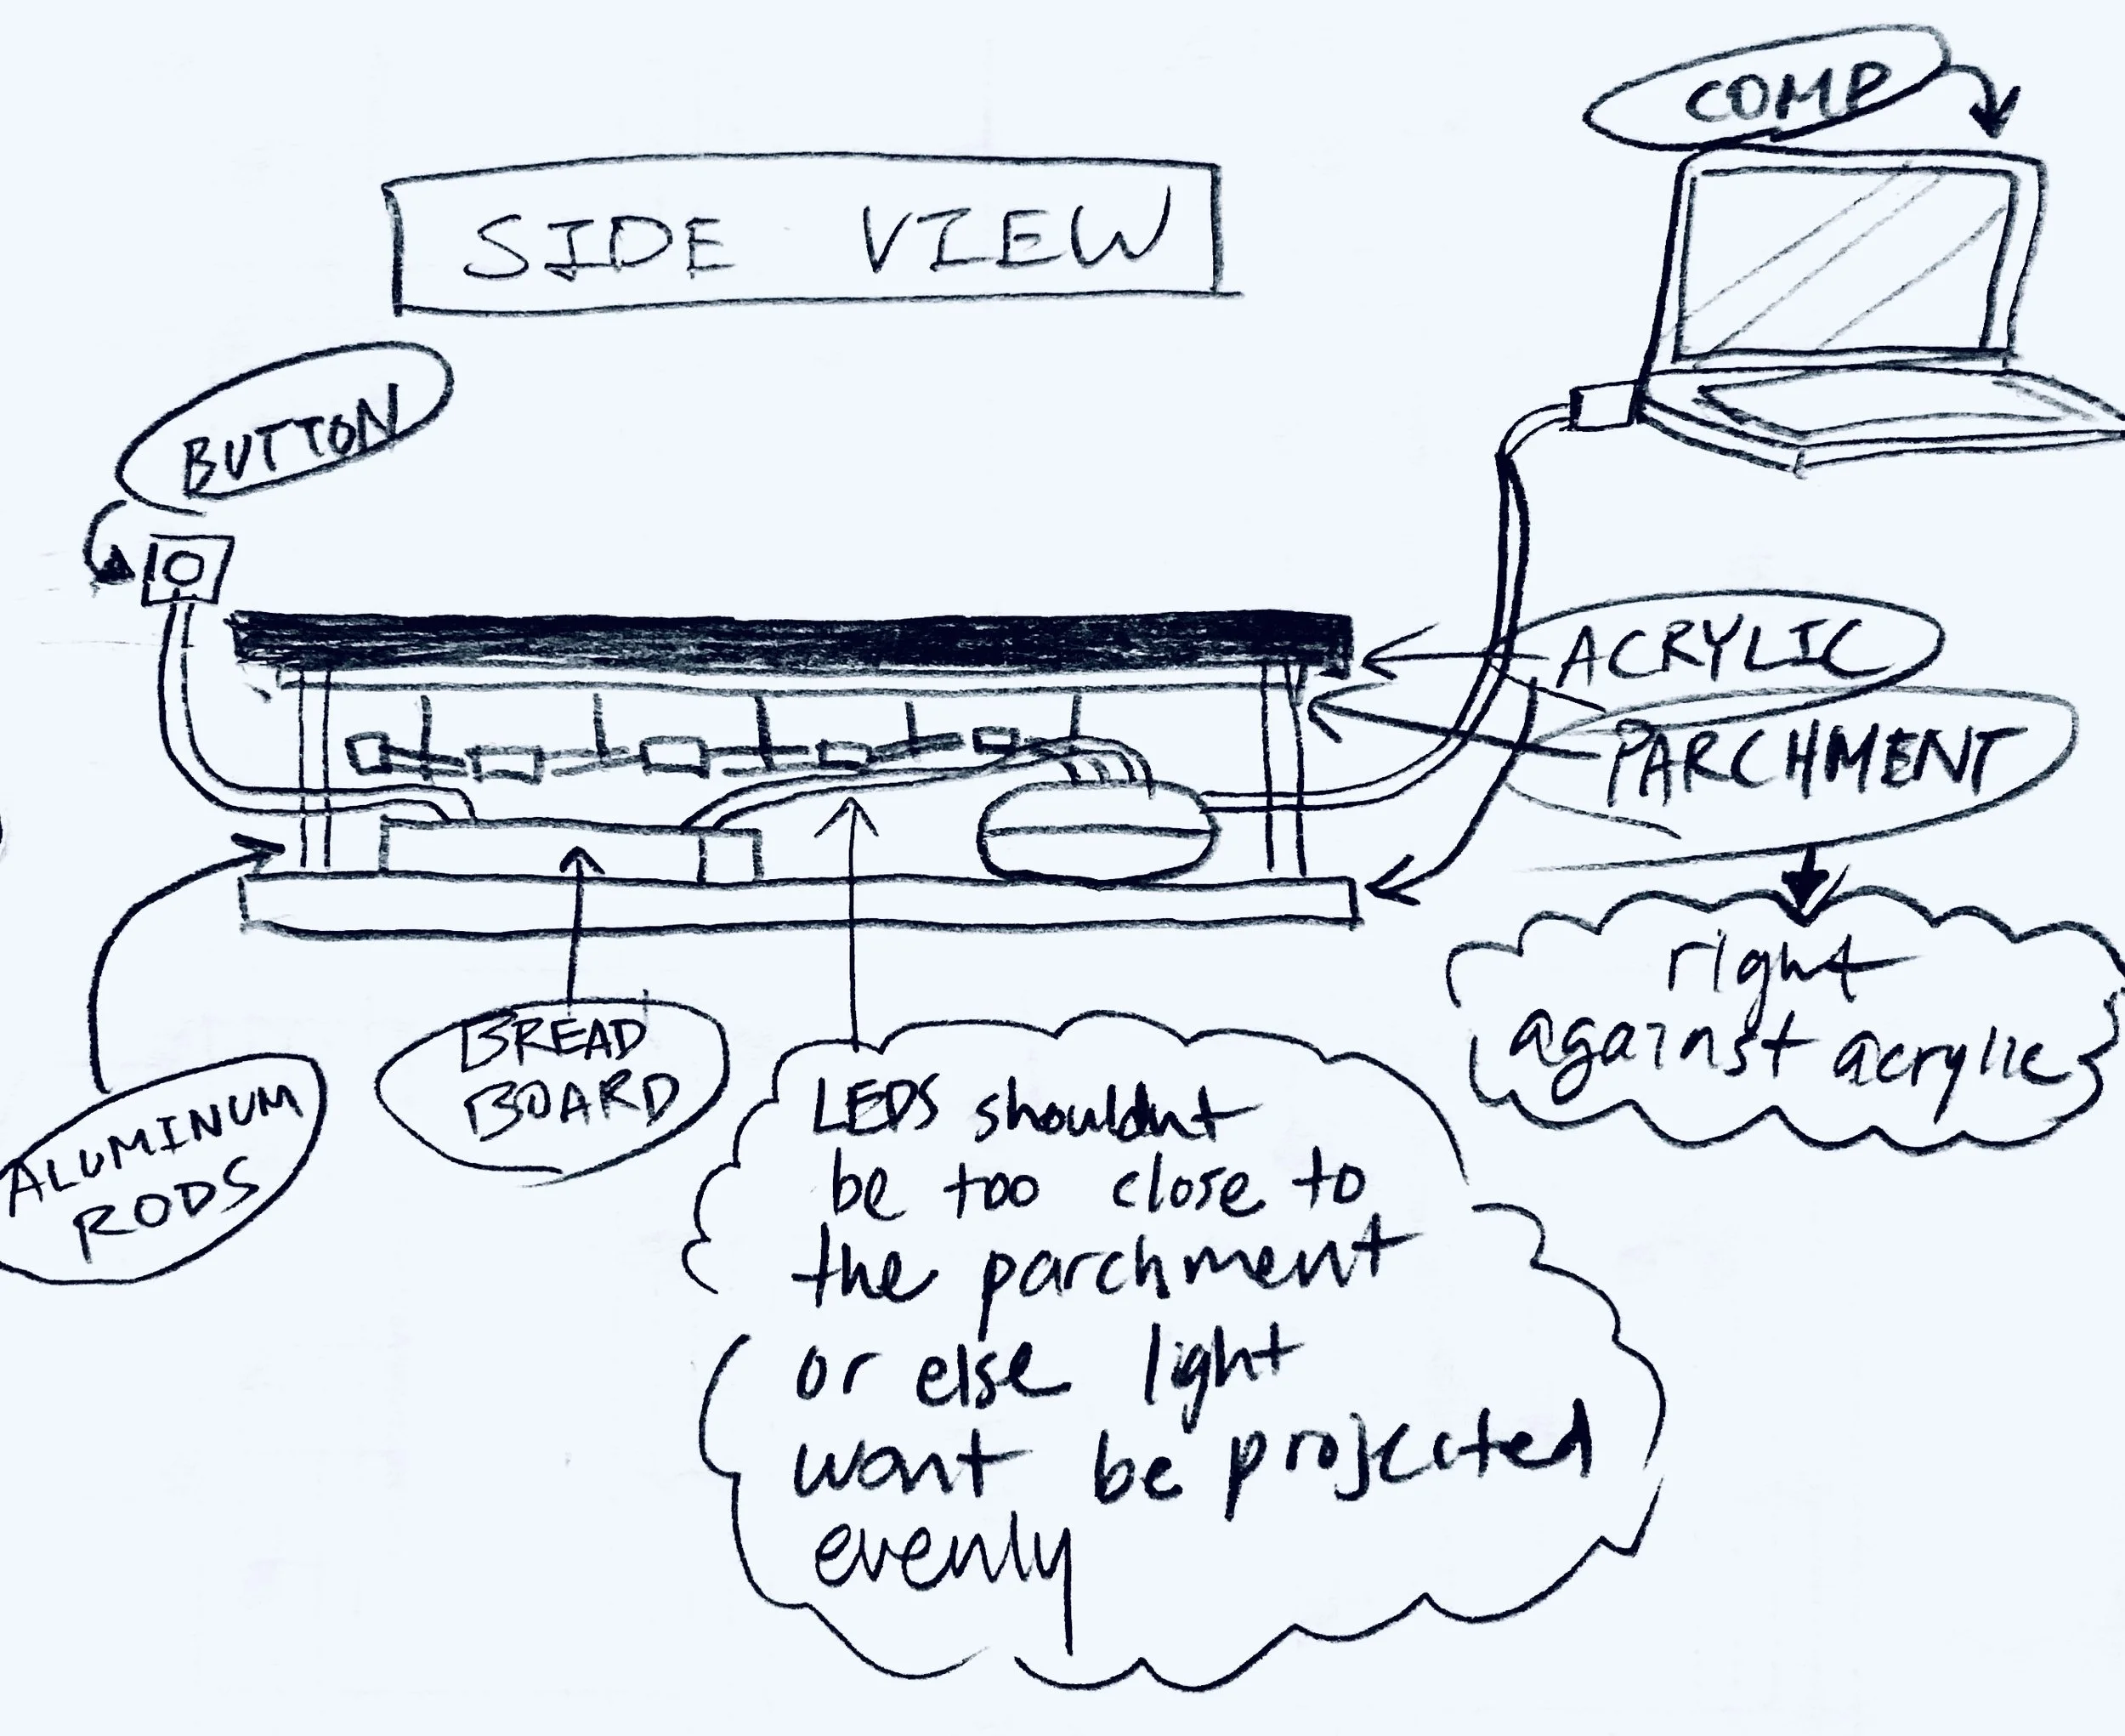 COMP
SIDE VIEW
BUTTON
ACRYLIC
PARCHMENT
right
against acrylic
BREAD
BOARD
ALUMINUM
RODS
LEDS shouldnt
be too close to
the parchment
or else light
wont be projected
evenly